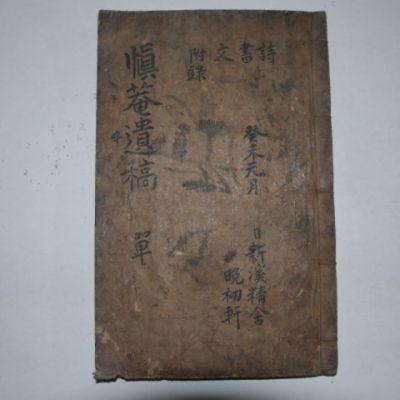 詩
書
文
附錄
癸未元月
日新溪精舍
晩初軒
愼菴遺稿 單